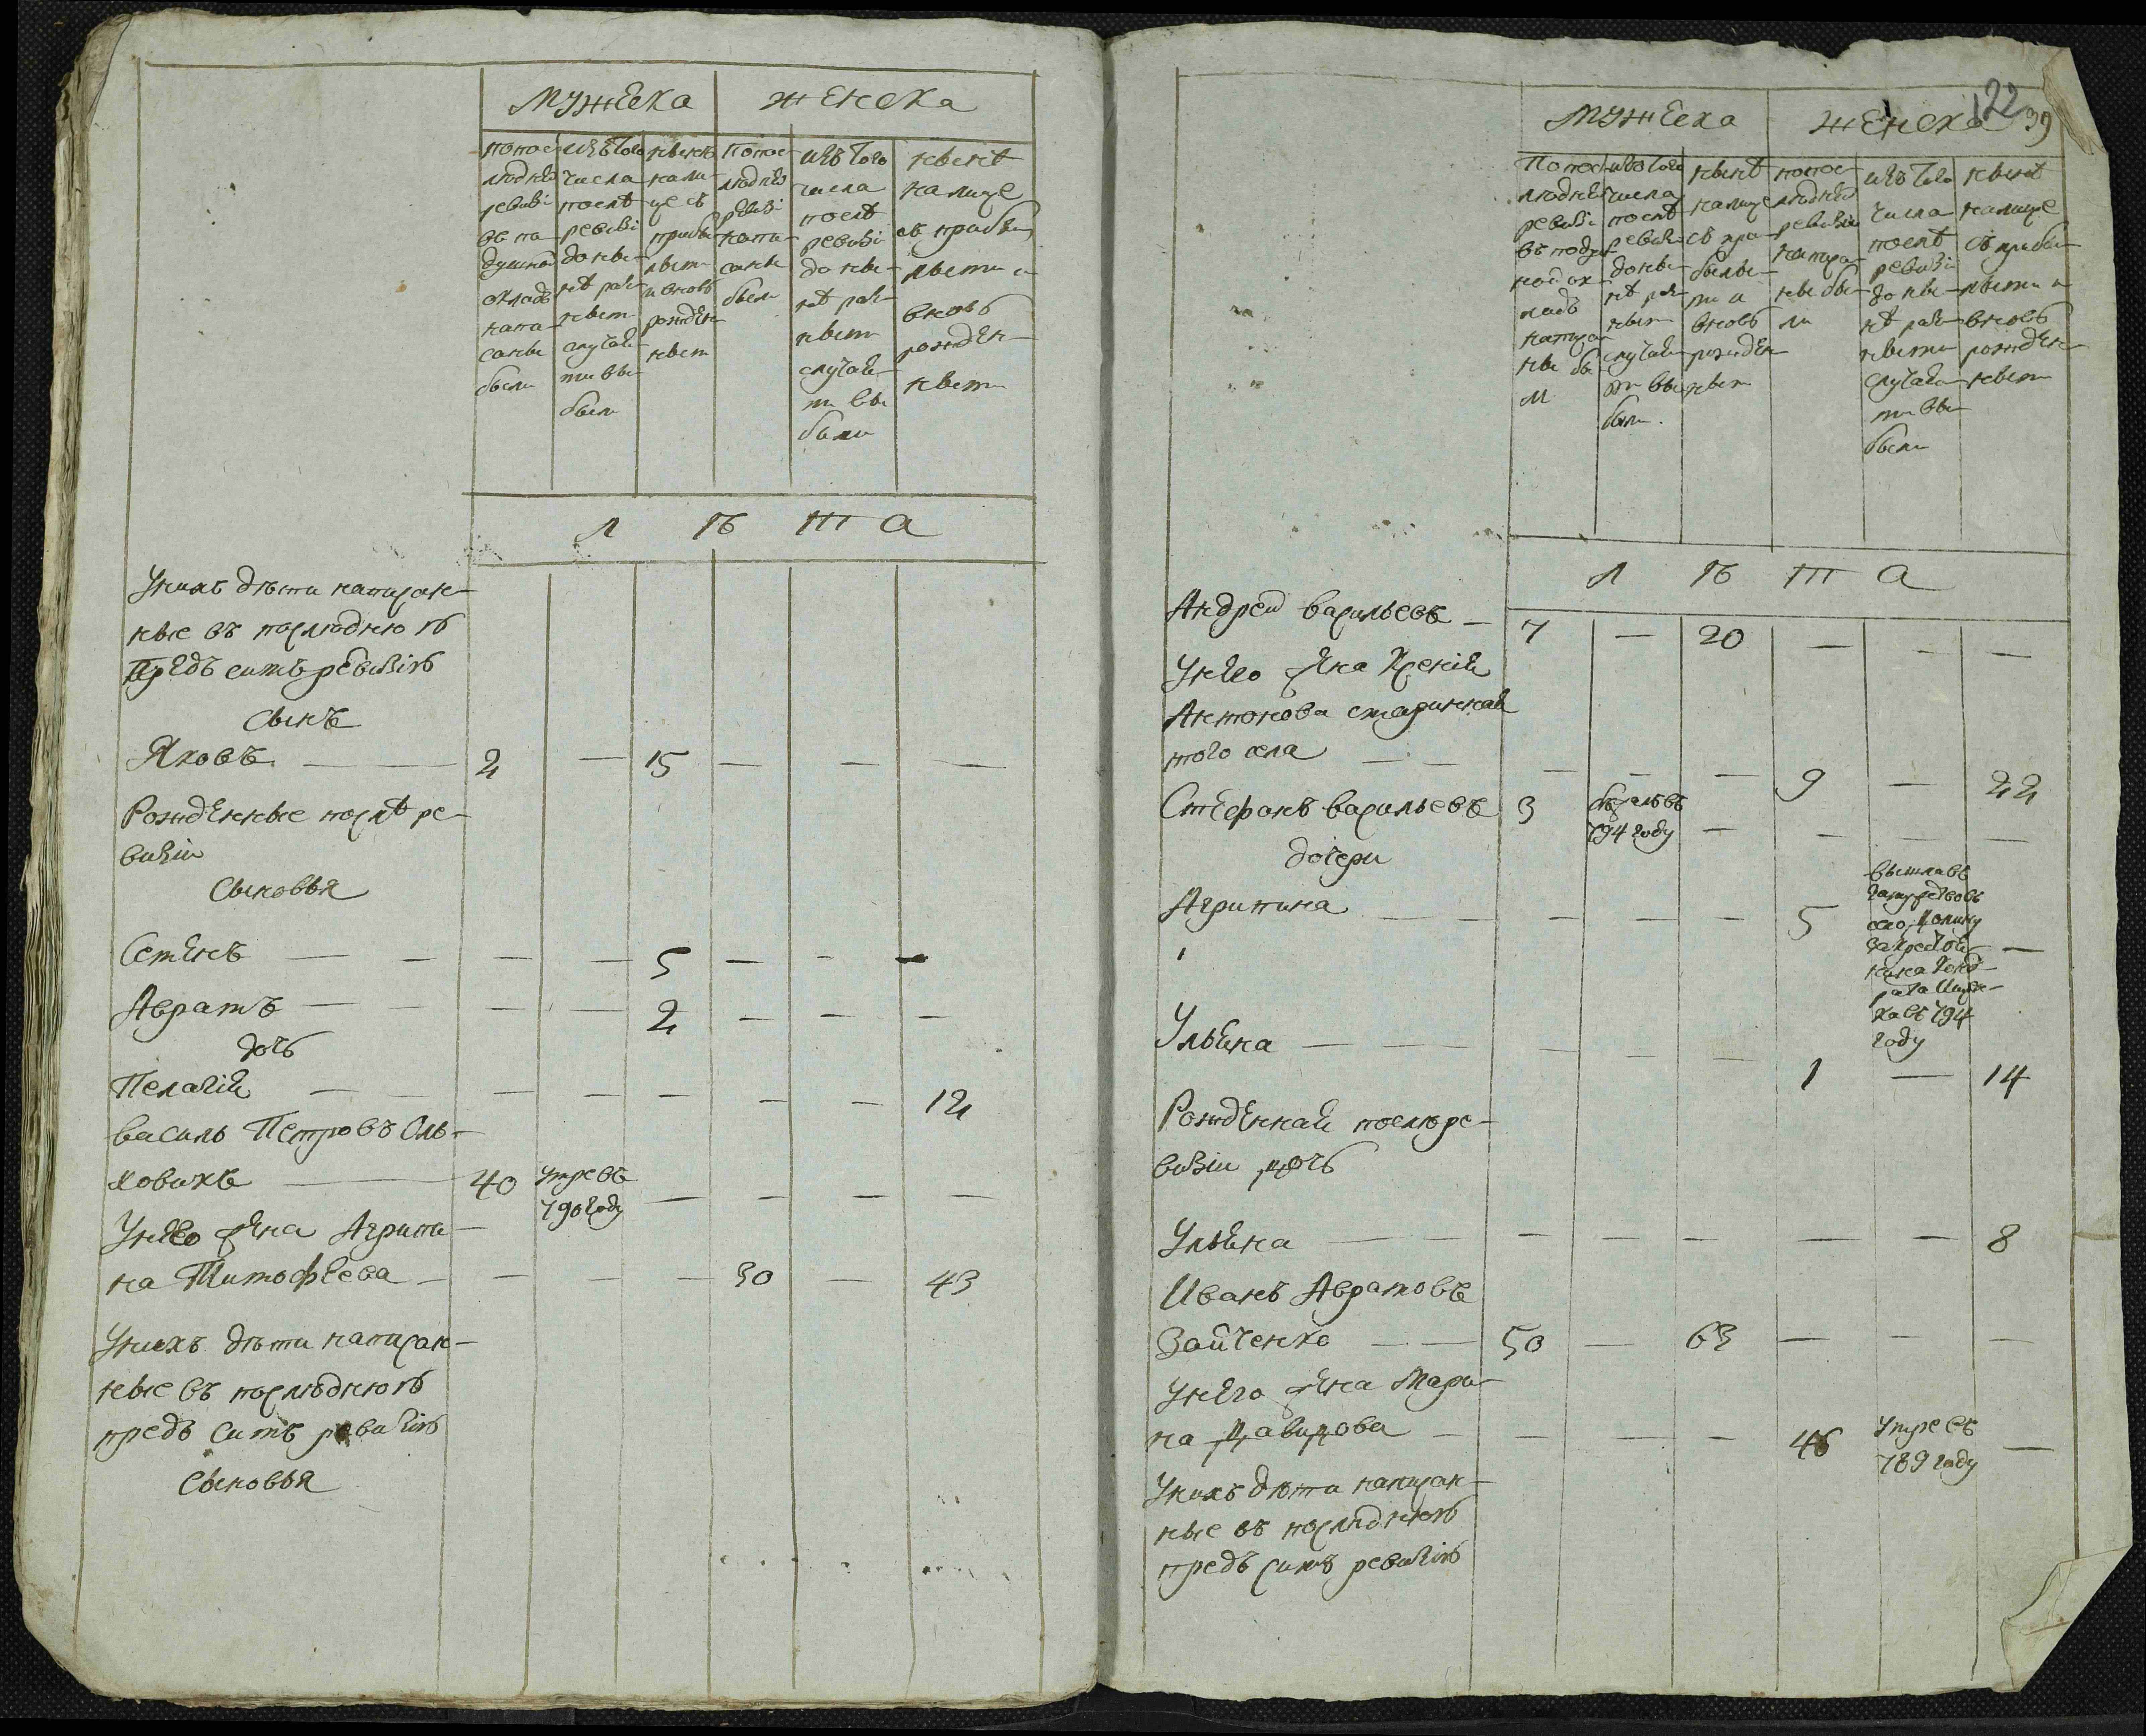 Мужеска
женска
По пос-
ледней
ревизі
въ по
душной
окладъ
напи-
саны
были
изъ того
числа
после
ревизі
до ны-
не раз-
ными
случая-
ми вы
были
ныне
на ли-
це съ
прибы-
лыми
и вновь
рожден-
ными
по пос-
ледней
ревизі
напи-
саны
были
изъ того
числа
после
ревизі
до ны-
не раз-
ными
случая-
ми вы
были
ныне
на лице
съ прибы-
лыми и
вновь
рожден-
ными
Л Ѣ Т А
Уних дѣти написан-
ные въ последнюю
предъ симъ ревизію
сынъ
Яковъ — 2 — 15 — — —
Рожденные после ре-
визіи
сыновья
Семенъ — — — 5 — — —
Аврамъ — — — 2 — — —
дочь
Пелагія — — — — — — 12
Василь Петровъ Оль-
ховикъ — 40 умре въ
790 году — — — —
Унево жена Агрипи-
на Тимофеева — — — — 30 — 43
Унихъ дѣти написан-
ные въ последнюю
предъ симъ ревизію
сыновья
122
39
Мужеска
женска
По пос-
ледней
ревизі
въ подуш-
ной ок-
ладъ
написа-
ны бы-
ли
изъ того
числа
после
ревизі
до ны-
не раз-
ными
случая-
ми вы
были
ныне
на лице
съ при-
былы-
ми и
вновь
рожден-
ными
по пос-
ледней
ревизіи
написа-
ны бы-
ли
изъ того
числа
после
ревизі
до ны-
не раз-
ными
случая-
ми вы
были
ныне
на лице
съ прибы-
лыми и
вновь
рожден-
ными
Л Ѣ Т А
Андрей Васильевъ — 7 — 20 — — —
Унево жена Ксенія
Антонова старинная
того села — — — — — 9 — 22
Стефанъ Васильевъ 3 бежалъ въ
794 году — — — —
дочери
Агрипина — — — — — 5 вышла въ
замужество въ
село
за крестья-
нина Конд-
рата
ка въ 794
году —
Ульяна — — — — — — 1 — 14
Рожденная после ре-
визіи дочь
Ульяна — — — — — — — 8
Иванъ Аврамовъ
Зайченко — 50 — 63 — — —
Унего жена Мари-
на Давидова — — — — 46 умре въ
789 году —
Унихъ дѣти написан-
ные въ последнюю
предъ симъ ревизію